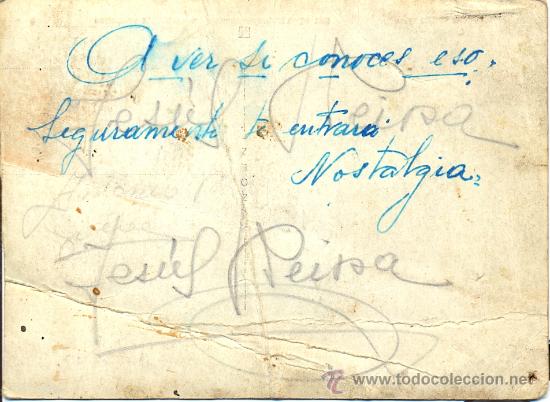 A ver si conoces eso.
Jesús Reipa
Seguramente te entrará
Nostalgia=
Jesús Reipa
www.todocoleccion.net